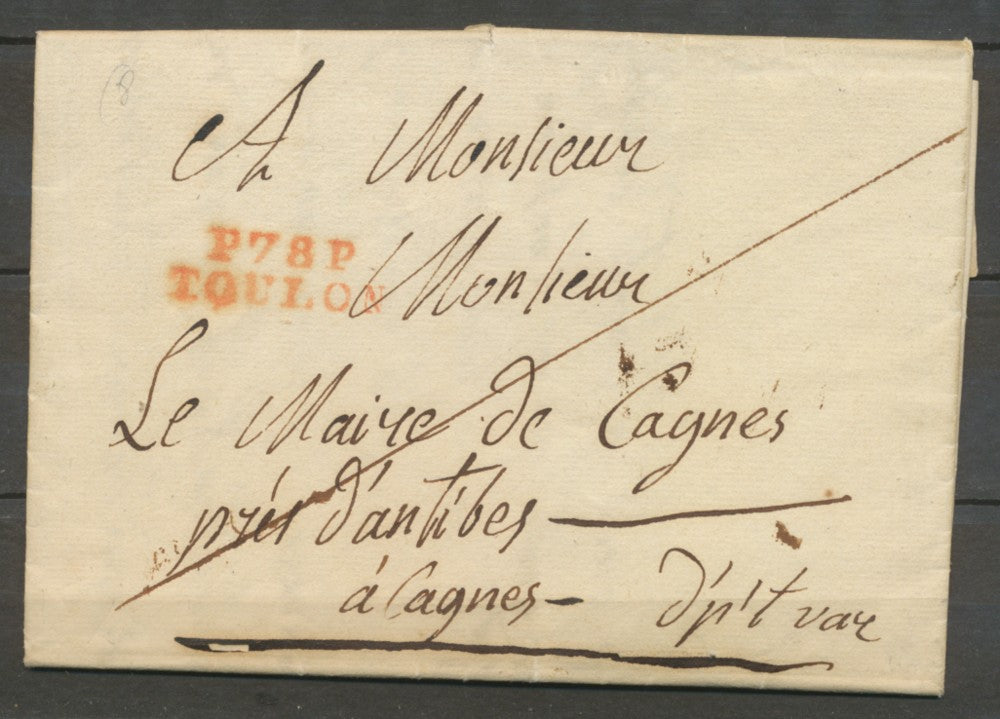 8
A Monsieur
P78P
TOULON
Monsieur
Le Maire de Cagnes
prés d'antibes
á Cagnes - dp't var